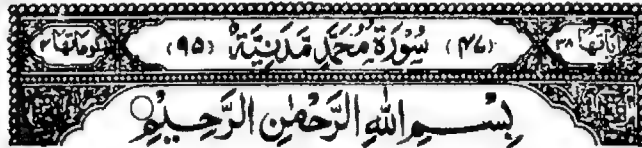 اٰیَاتُهَا ۳۸ (۴۷) سُوْرَةُ مُحَمَّدٍ مَّدَنِيَّةٌ (۹۵) رُكُوْعَاتُهَا ۴
بِسْمِ اللّٰهِ الرَّحْمٰنِ الرَّحِيْمِ